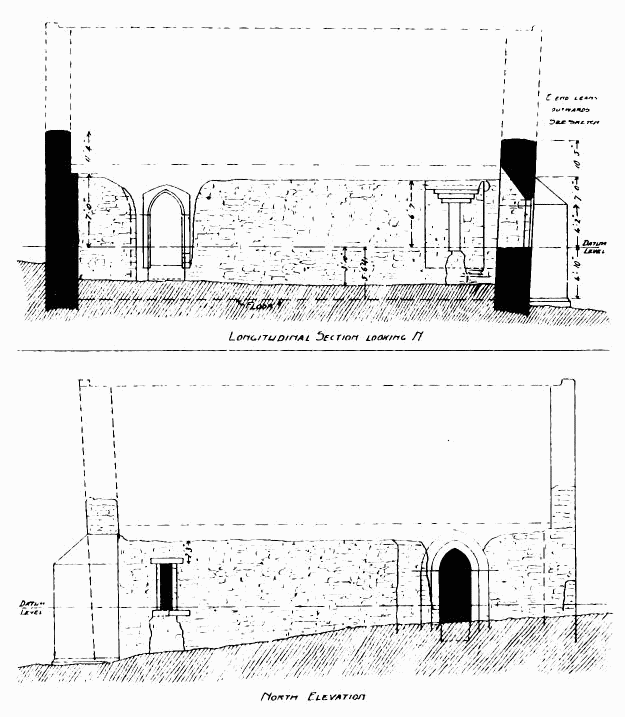 E END LEANS
OUTWARDS
SEE SKETCH
11'.4"
7'.0"
6'.7"
10'.5"
7'.0"
6'.2"
DATUM
LEVEL
6'.10"
FLOOR ?
LONGITUDINAL SECTION LOOKING N
2'.3"
DATUM
LEVEL
NORTH ELEVATION